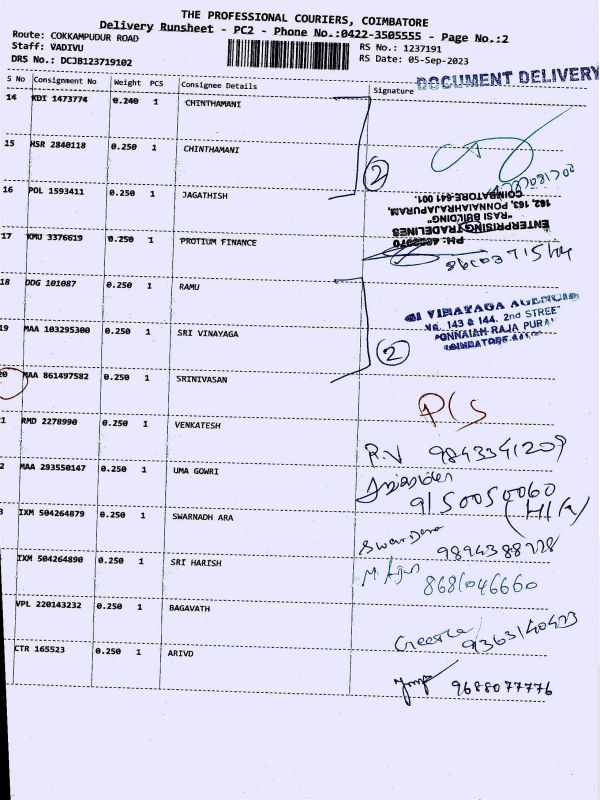 THE PROFESSIONAL COURIERS, COIMBATORE
Delivery Runsheet - PC2 - Phone No.:0422-3505555 - Page No.:2
Route: COKKAMPUDUR ROAD
Staff: VADIVU
DRS No.: DCJB123719102
RS No.: 1237191
RS Date: 05-Sep-2023
DOCUMENT DELIVERY
S No Consignment No Weight PCS Consignee Details Signature
14 KDI 1473774 0.240 1 CHINTHAMANI
15 HSR 2840118 0.250 1 CHINTHAMANI
2
16 POL 1593411 0.250 1 JAGATHISH
COIMBATORE-641 001.
162, 163, PONNIAHRAJAPURAM,
"RASI BUILDING"
ENTERPRISING TRADELINES
17 KMU 3376619 0.250 1 PROTIUM FINANCE
18 DDG 101087 0.250 1 RAMU
SRI VINAYAGA AGENCIES
No. 143 & 144, 2nd STREET
PONNAIAH RAJA PURAM
19 MAA 103295300 0.250 1 SRI VINAYAGA
2
20 MAA 861497582 0.250 1 SRINIVASAN
P/S
1 RMD 2278990 0.250 1 VENKATESH
R.V 9843341209
2 MAA 293550147 0.250 1 UMA GOWRI
9150050060
3 IXM 504264879 0.250 1 SWARNADH ARA
9894388728
IXM 504264890 0.250 1 SRI HARISH
8681046660
VPL 220143232 0.250 1 BAGAVATH
9363140433
CTR 165523 0.250 1 ARIVD
9688077776